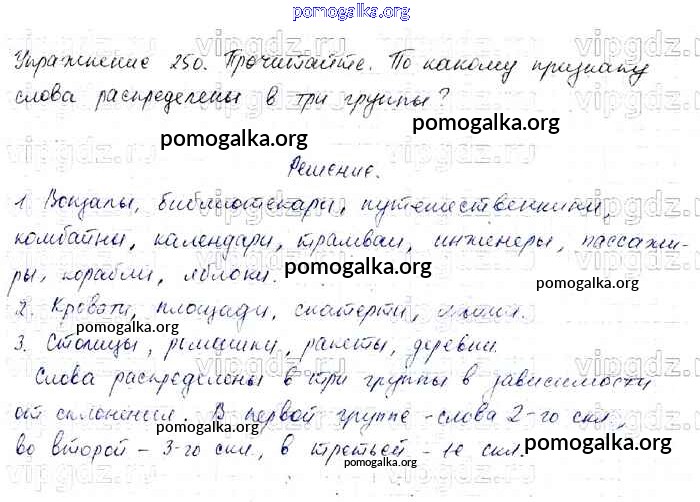 pomogalka.org
Упражнение 250. Прочитайте. По какому признаку
слова распределены в три группы?
pomogalka.org pomogalka.org
Решение.
1. Вокзалы, библиотекари, путешественники,
комбайны, календари, трамваи, инженеры, пассажи-
ры, корабли, яблоки.
pomogalka.org
2. Кровати, площади, скатерти,
pomogalka.org pomogalka.org
3. Столицы, ромашки, ракеты, деревни.
pomogalka.org
Слова распределены в три группы в зависимости
от склонения. В первой группе - слова 2-го скл.,
pomogalka.org
во второй - 3-го скл., в третьей - 1е скл.
pomogalka.org pomogalka.org